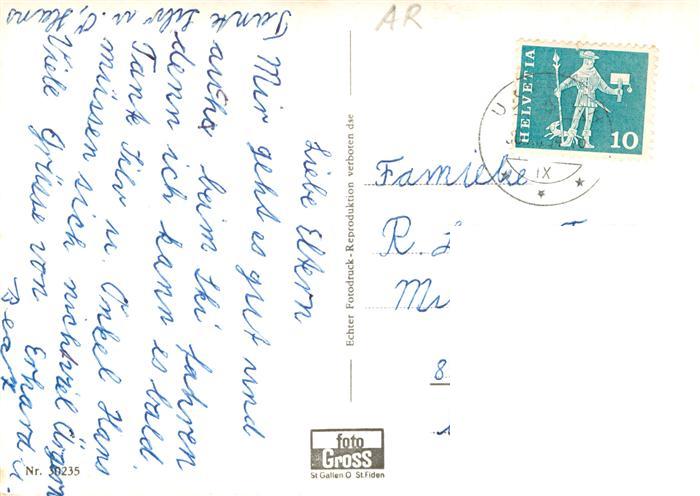 Liebe Eltern
Mir geht es gut und
auch beim Ski fahren
denn ich kann es bald.
Tante Silv u. Onkel Hans
müssen sich nicht viel Ärgern
Viele Grüsse von Erhard u.
Beat
Tante Silv u. O, Hans
Echter Fotodruck - Reproduktion verboten dse
AR
HELVETIA
10
U
IX
Familie
R. L
Mü
8
foto
Gross
St Gallen O St. Fiden
Nr. 30235